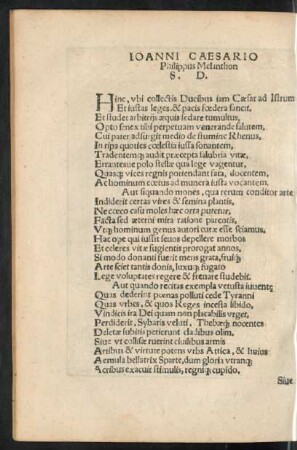 IOANNI CAESARIO
Philippus Melanthon
S. D.
Hinc, vbi collectis Ducibus iam Cæsar ad Istrum
Et iustas leges, & pacis fœdera sancit,
Et studet arbitrijs æquis sedare tumultus,
Opto senex tibi perpetuam venerande salutem,
Cui pater adsurgit medio de flumine Rhenus,
In ripa quoties cœlestia iussa sonantem,
Tradentemq; audit præcepta salubria vitæ,
Errantesue polo stellæ qua lege vagentur,
Quasq; vices regnis portendant fata, docentem,
Ac hominum cœtus ad munera iusta vocantem,
Aut siquando mones, qua rerum conditor arte
Indiderit certas vires & semina plantis,
Ne cæco casu moles hæc orta putetur,
Facta sed æterni mira ratione parentis,
Vtq; hominum genus autori curæ esse sciamus,
Hac ope qui iussit seuos depellere morbos
Et celeres vitæ fugientis prorogat annos,
Si modo donanti fuerit mens grata, fruiq;
Arte sciet tantis donis, luxuq; fugato
Lege voluptates regere & frenare studebit.
Aut quando recitas exempla vetusta iuuentę
Quas dederint pœnas polluti cede Tyranni
Quas vrbes, & quos Reges incesta libido,
Vindicis ira Dei quam non placabilis vrget,
Perdiderit, Sybaris veluti, Thebæq; nocentes
Deletæ subitis perierunt cladibus olim.
Siue vt collisæ ruerint ciuilibus armis
Artibus & virtute potens vrbs Attica, & huius
Aemula bellatrix Sparte, dum gloria vtranq;
Acribus exacuit stimulis, regniq; cupido.
Siue